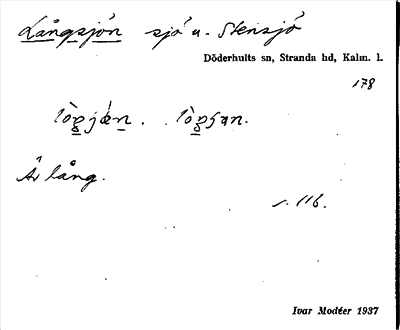 Långsjön sjö u. Stensjö
Döderhults sn, Stranda hd, Kalm. l.
178
Är lång.
s. 116.
Ivar Modéer 1937